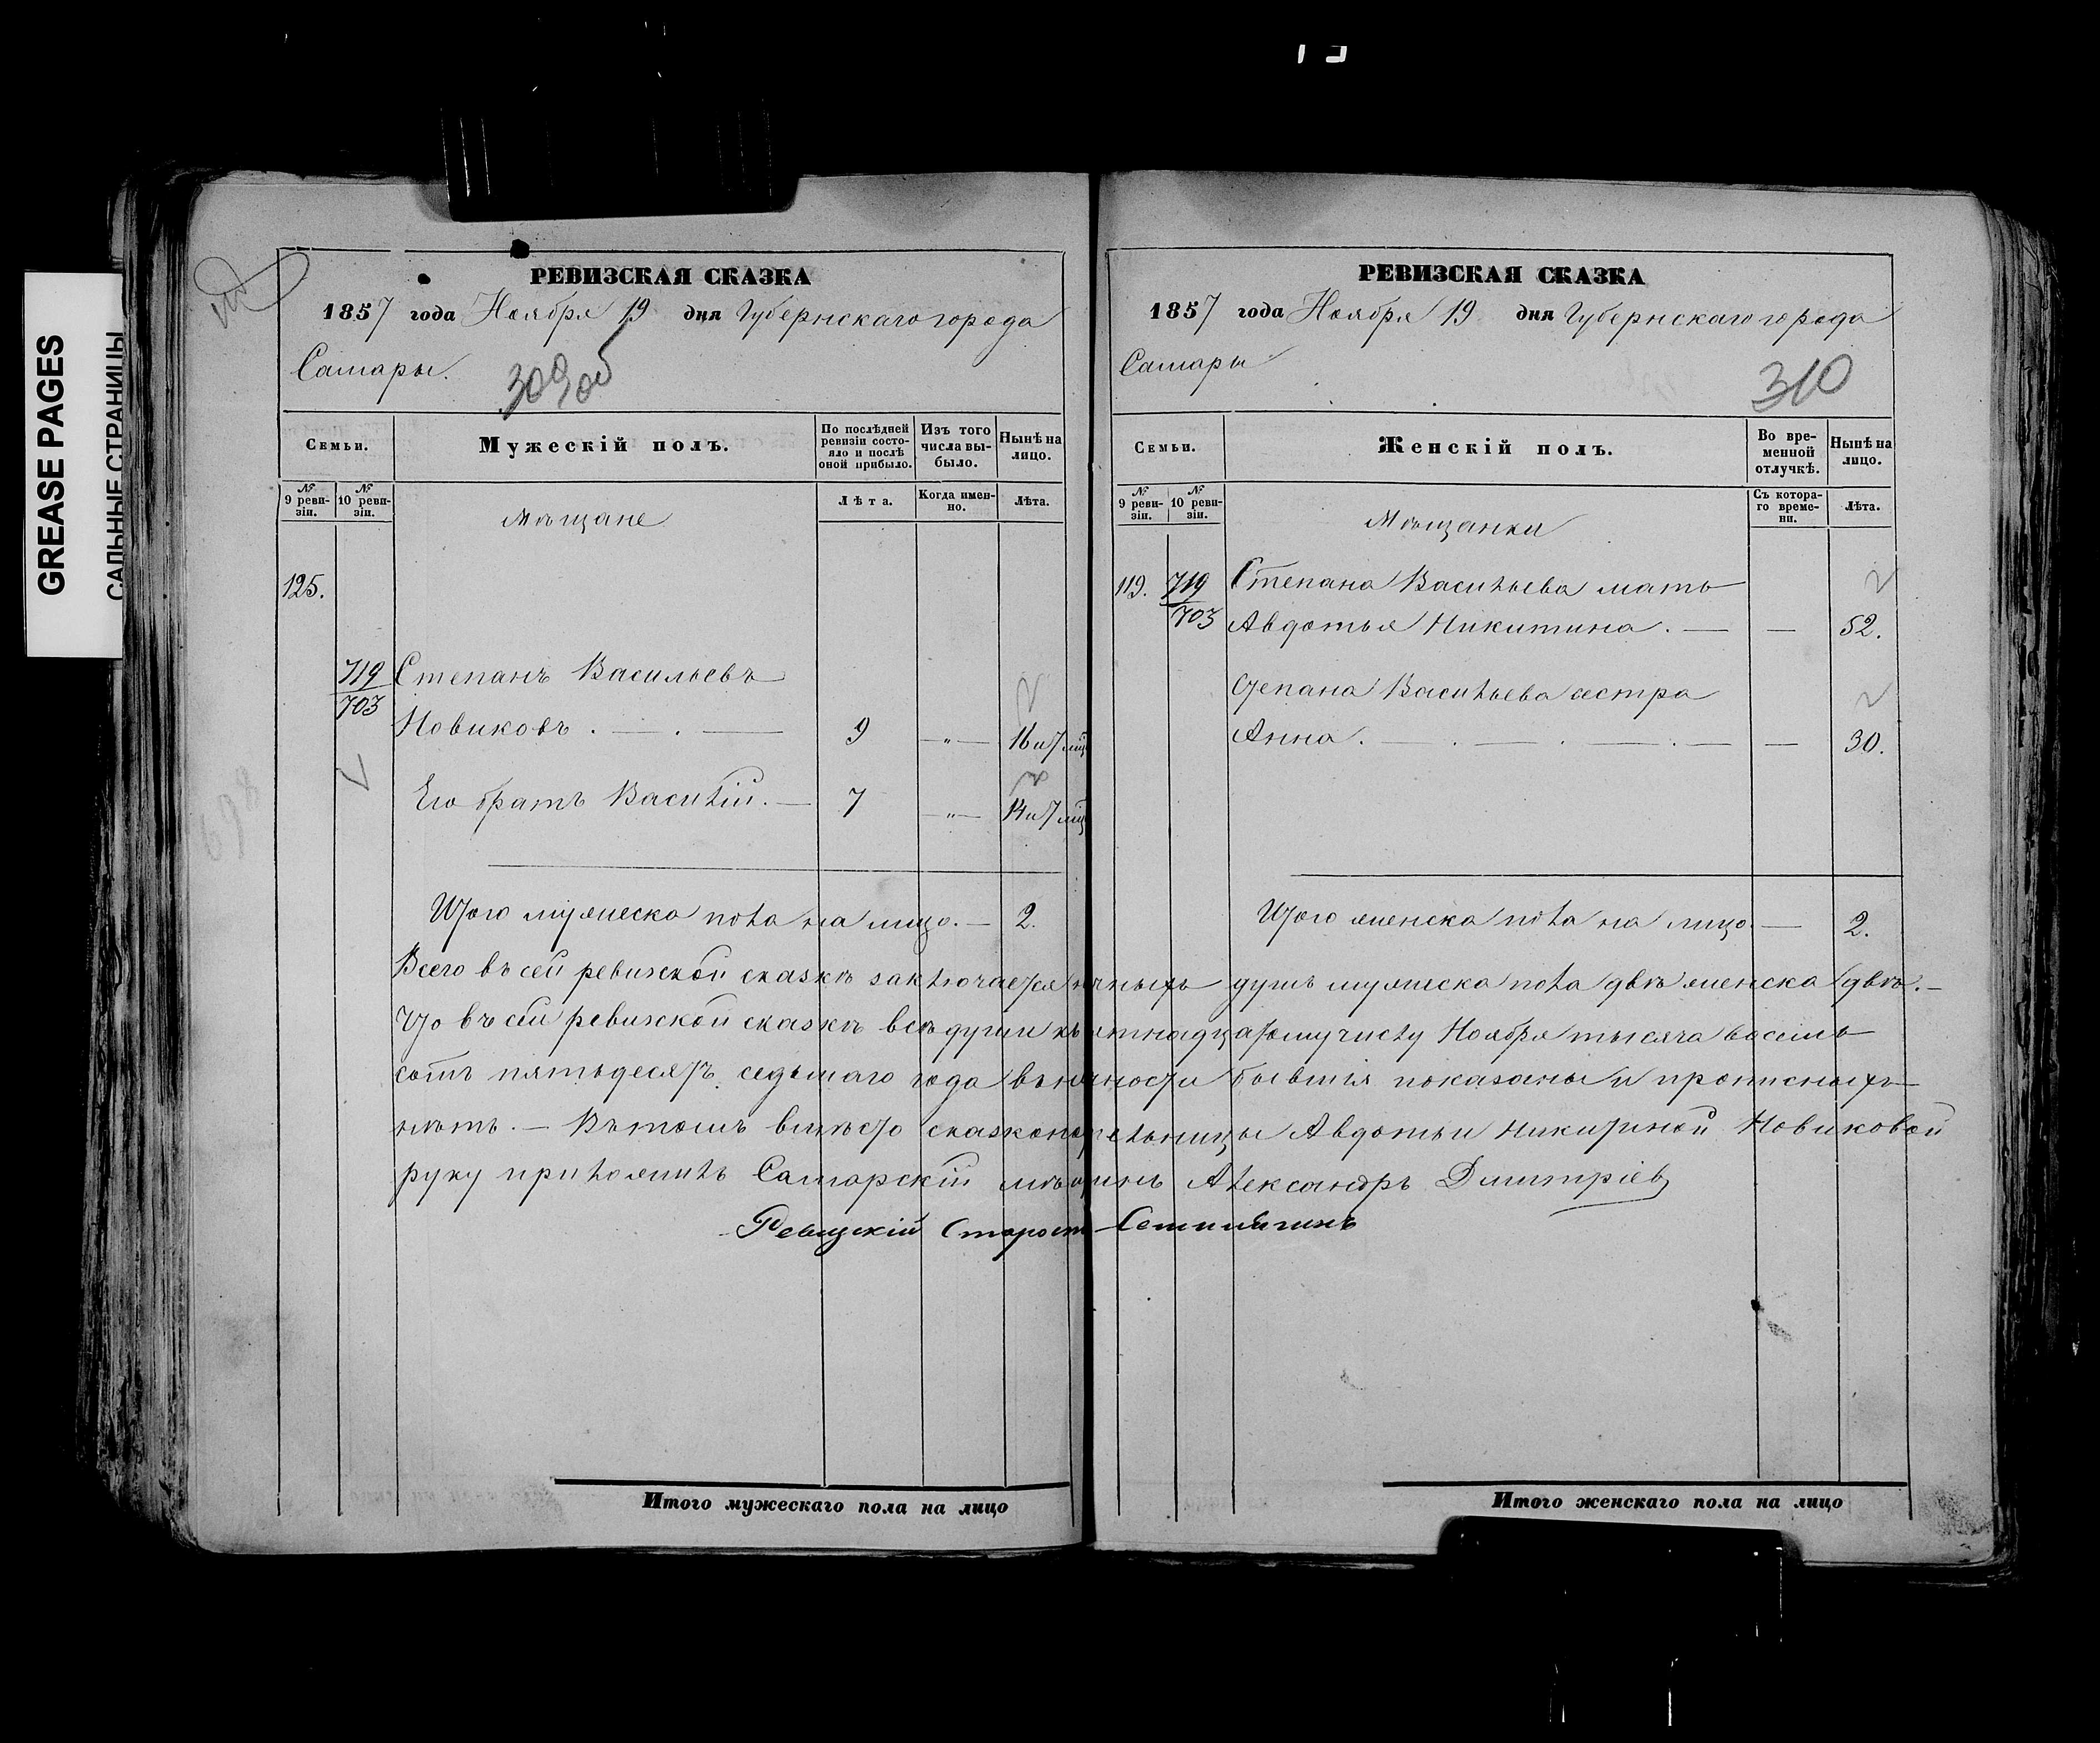 GREASE PAGES
САЛЬНЫЕ СТРАНИЦЫ
РЕВИЗСКАЯ СКАЗКА
1857 года Ноября 19 дня Губернскаго города
Самары.
309 об
Семьи.
Мужескій полъ.
По послѣдней ревизіи состояло и послѣ оной прибыло.
Изъ того числа выбыло.
Нынѣ на лицо.
№ 9 ревизіи.
№ 10 ревизіи.
Мѣщане
Лѣта.
Когда именно.
Лѣта.
125.
719
703
Степанъ Васильевъ
Новиковъ . — . — 9 — „ — 16 и 7 мѣц
Его братъ Василій. — 7 — „ — 14 и 7 мѣц
Итого мужеска пола на лицо. — 2.
РЕВИЗСКАЯ СКАЗКА
1857 года Ноября 19 дня Губернскаго города
Самары
310
Семьи.
Женскій полъ.
Во временной отлучкѣ.
Нынѣ на лицо.
№ 9 ревизіи.
№ 10 ревизіи.
Мѣщанки
Съ котораго времени.
Лѣта.
119. 719 Степана Васильева мать
703 Авдотья Никитина. — — 52.
Степана Васильева сестра
Анна. — . — . — . — — 30.
Итого женска пола на лицо. — 2.
Всего въ сей ревизской сказкѣ заключается личныхъ душъ мужеска пола двѣ женска двѣ. —
Что въ сей ревизской сказкѣ всѣ души къ надцатому числу Ноября тысяча восемь
сотъ пятьдесятъ седьмаго года въ личности бывшія показаны и прописныхъ
нѣтъ. — Въ томъ вмѣсто сказкоподательницы Авдотьи Никитиной Новиковой
руку приложилъ Самарскій мѣщанинъ Александръ Дмитріевъ
Ревизскій Староста
Итого мужескаго пола на лицо
Итого женскаго пола на лицо